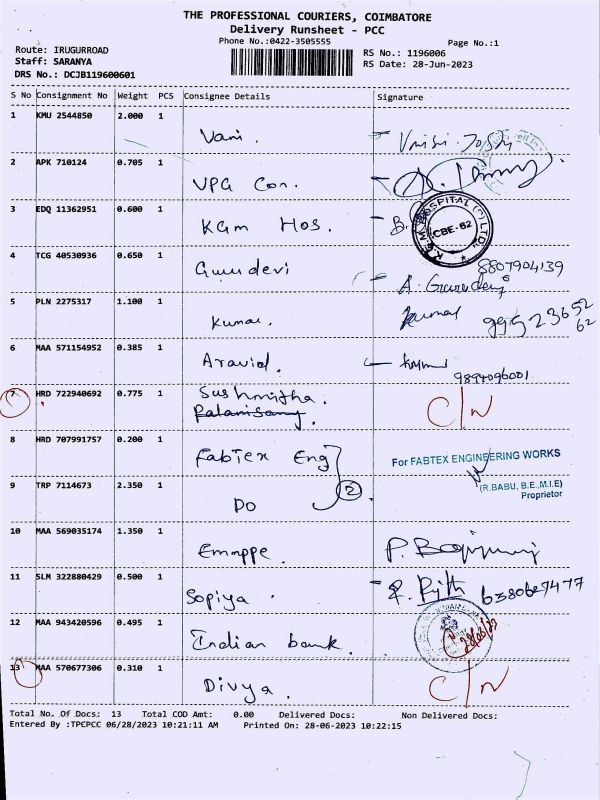 THE PROFESSIONAL COURIERS, COIMBATORE
Delivery Runsheet - PCC
Phone No.:0422-3505555
Page No.:1
Route: IRUGURROAD
RS No.: 1196006
Staff: SARANYA
RS Date: 28-Jun-2023
DRS No.: DCJB119600601
S No Consignment No Weight PCS Consignee Details Signature
1 KMU 2544850 2.000 1
Vani.
2 APK 710124 0.705 1
VPG Con.
3 EDQ 11362951 0.600 1
KGM Hos. B.
HOSPITAL (C) LTD.
CBE-62
4 TCG 40530936 0.650 1
Gurudevi 8807904139
A. Gurudevi
5 PLN 2275317 1.100 1
Kumar. Kumar 9952365262
6 MAA 571154952 0.385 1
Aravid.
9894096001
7 HRD 722940692 0.775 1
Sushmitha. C/N
Palanisamy.
8 HRD 707991757 0.200 1
Fabtex Eng
For FABTEX ENGINEERING WORKS
9 TRP 7114673 2.350 1
(R.BABU, B.E.,M.I.E)
Proprietor
DO 2
10 MAA 569035174 1.350 1
Emmppe.
11 SLM 322880429 0.500 1
Sopiya. 6380627477
12 MAA 943420596 0.495 1
Indian bank.
13 MAA 570677306 0.310 1
Divya. C/N
Total No. Of Docs: 13 Total COD Amt: 0.00 Delivered Docs: Non Delivered Docs:
Entered By :TPCPCC 06/28/2023 10:21:11 AM Printed On: 28-06-2023 10:22:15